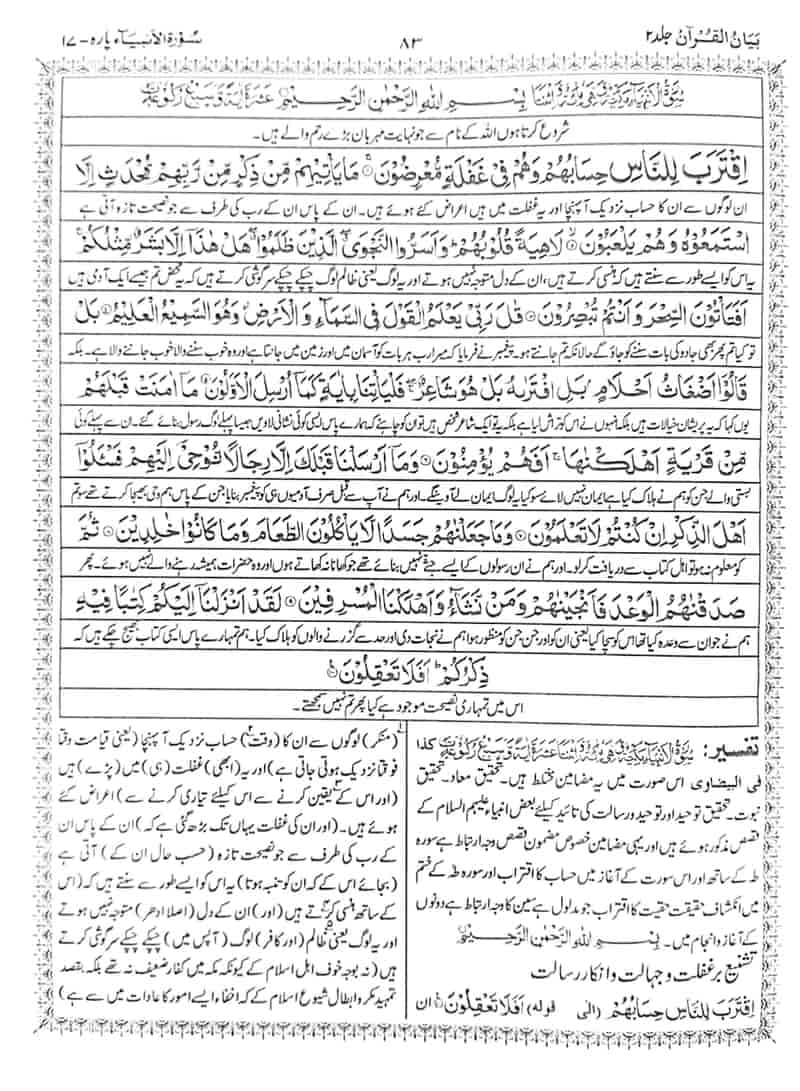 بیان القرآن جلد ۲
۸۳
سورۃ الانبیاء پارہ - ۱۷
بِسْمِ اللهِ الرَّحْمٰنِ الرَّحِيْمِ
شروع کرتا ہوں اللہ کے نام سے جو نہایت مہربان بڑے رحم والے ہیں۔
اِقْتَرَبَ لِلنَّاسِ حِسَابُهُمْ وَهُمْ فِيْ غَفْلَةٍ مُّعْرِضُوْنَ ۚ مَا يَاْتِيْهِمْ مِّنْ ذِكْرٍ مِّنْ رَّبِّهِمْ مُّحْدَثٍ اِلَّا
ان لوگوں سے ان کا حساب نزدیک آپہنچا اور یہ غفلت میں ہیں اعراض کئے ہوئے ہیں۔ ان کے پاس ان کے رب کی طرف سے جو نصیحت تازہ آتی ہے
اسْتَمَعُوْهُ وَهُمْ يَلْعَبُوْنَ ۙ لَاهِيَةً قُلُوْبُهُمْ ؕ وَاَسَرُّوا النَّجْوَى ۖ الَّذِيْنَ ظَلَمُوْا ۖ هَلْ هٰذَاۤ اِلَّا بَشَرٌ مِّثْلُكُمْ ۚ
یہ اس کو ایسے طور سے سنتے ہیں کہ ہنسی کرتے ہیں، ان کے دل متوجہ نہیں ہوتے اور یہ لوگ یعنی ظالم لوگ چپکے چپکے سرگوشی کرتے ہیں کہ یہ محض تم جیسے ایک آدمی ہیں
اَفَتَاْتُوْنَ السِّحْرَ وَاَنْتُمْ تُبْصِرُوْنَ ۝ قٰلَ رَبِّيْ يَعْلَمُ الْقَوْلَ فِي السَّمَآءِ وَالْاَرْضِ ۚ وَهُوَ السَّمِيْعُ الْعَلِيْمُ ۝ بَلْ
تو کیا تم پھر بھی جادو کی بات سننے کو جاؤ گے حالانکہ تم جانتے ہو۔ پیغمبر نے فرمایا کہ میرا رب ہر بات کو آسمان میں اور زمین میں جانتا ہے اور وہ خوب سننے والا خوب جاننے والا ہے۔ بلکہ
قَالُوْۤا اَضْغَاثُ اَحْلَامٍۭ بَلِ افْتَرٰىهُ بَلْ هُوَ شَاعِرٌ ۖ فَلْيَاْتِنَا بِاٰيَةٍ كَمَاۤ اُرْسِلَ الْاَوَّلُوْنَ ۝ مَاۤ اٰمَنَتْ قَبْلَهُمْ
یوں کہا کہ یہ پریشان خیالات ہیں بلکہ انہوں نے اس کو تراش لیا ہے بلکہ یہ تو ایک شاعر شخص ہیں تو ان کو چاہئے کہ ہمارے پاس ایسی کوئی نشانی لاویں جیسا پہلے لوگ رسول بنائے گئے۔ ان سے پہلے کوئی
مِّنْ قَرْيَةٍ اَهْلَكْنٰهَا ۚ اَفَهُمْ يُؤْمِنُوْنَ ۝ وَمَاۤ اَرْسَلْنَا قَبْلَكَ اِلَّا رِجَالًا نُّوْحِيْۤ اِلَيْهِمْ فَسْـَٔلُوْۤا
بستی والے جن کو ہم نے ہلاک کیا ہے ایمان نہیں لائے سو کیا یہ لوگ ایمان لے آوینگے۔ اور ہم نے آپ سے قبل صرف آدمیوں ہی کو پیغمبر بنایا جن کے پاس ہم وحی بھیجا کرتے تھے سو تم
اَهْلَ الذِّكْرِ اِنْ كُنْتُمْ لَا تَعْلَمُوْنَ ۝ وَمَا جَعَلْنٰهُمْ جَسَدًا لَّا يَاْكُلُوْنَ الطَّعَامَ وَمَا كَانُوْا خٰلِدِيْنَ ۝ ثُمَّ
کو معلوم نہ ہو تو اہل کتاب سے دریافت کر لو۔ اور ہم نے ان رسولوں کے ایسے جثے نہیں بنائے تھے جو کھانا نہ کھاتے ہوں اور وہ حضرات ہمیشہ رہنے والے نہیں ہوئے۔ پھر
صَدَقْنٰهُمُ الْوَعْدَ فَاَنْجَيْنٰهُمْ وَمَنْ نَّشَآءُ وَاَهْلَكْنَا الْمُسْرِفِيْنَ ۝ لَقَدْ اَنْزَلْنَاۤ اِلَيْكُمْ كِتٰبًا فِيْهِ
ہم نے جو ان سے وعدہ کیا تھا اس کو سچا کیا یعنی ان کو اور جن جن کو منظور ہوا ہم نے نجات دی اور حد سے گزرنے والوں کو ہلاک کیا۔ ہم تمہارے پاس ایسی کتاب بھیج چکے ہیں کہ
ذِكْرُكُمْ ؕ اَفَلَا تَعْقِلُوْنَ ۝
اس میں تمہاری نصیحت موجود ہے کیا پھر تم نہیں سمجھتے۔
تفسیر: کذا
فی البیضاوی اس صورت میں یہ مضامین مختلط ہیں۔ تحقیق معاد۔ تحقیق
نبوت۔ تحقیق توحید اور توحید و رسالت کی تائید کیلئے بعض انبیاء علیہم السلام کے
قصص مذکور ہوئے ہیں اور یہی مضامین خصوص مضمون قصص وجہ ارتباط ہے سورہ
طہ کے ساتھ اور اس سورت کے آغاز میں حساب کا اقتراب اور سورہ طہ کے ختم
میں انکشاف حقیقت حقیت کا اقتراب جو مدلول ہے سین کا وجہ ارتباط ہے دونوں
کے آغاز و انجام میں۔ بِسْمِ اللهِ الرَّحْمٰنِ الرَّحِيْمِ
تشنیع بر غفلت و جہالت و انکار رسالت
اِقْتَرَبَ لِلنَّاسِ حِسَابُهُمْ (الی قولہ) اَفَلَا تَعْقِلُوْنَ ۝ ان
(منکر) لوگوں سے ان کا (وقت) حساب نزدیک آپہنچا (یعنی قیامت وقتا
فوقتا نزدیک ہوتی جاتی ہے) اور یہ (ابھی) غفلت (ہی) میں (پڑے) ہیں
(اور اس کے یقین کرنے سے اس کیلئے تیاری کرنے سے) اعراض کئے
ہوئے ہیں۔ (اور ان کی غفلت یہاں تک بڑھ گئی ہے کہ) ان کے پاس ان
کے رب کی طرف سے جو نصیحت تازہ (حسب حال ان کے) آتی ہے
(بجائے اس کے کہ ان کو تنبہ ہوتا) یہ اس کو ایسے طور سے سنتے ہیں کہ (اس
کے ساتھ ہنسی کرتے ہیں (اور) ان کے دل (اصلا ادھر) متوجہ نہیں ہوتے
اور یہ لوگ یعنی ظالم (اور کافر) لوگ (آپس میں) چپکے چپکے سرگوشی کرتے
ہیں (نہ بوجہ خوف اہل اسلام کے کیونکہ مکہ میں کفار ضعیف نہ تھے بلکہ بقصد
تمہید مکر و ابطال شیوع اسلام کے کہ اخفاء ایسے امور کا عادات میں سے ہے)